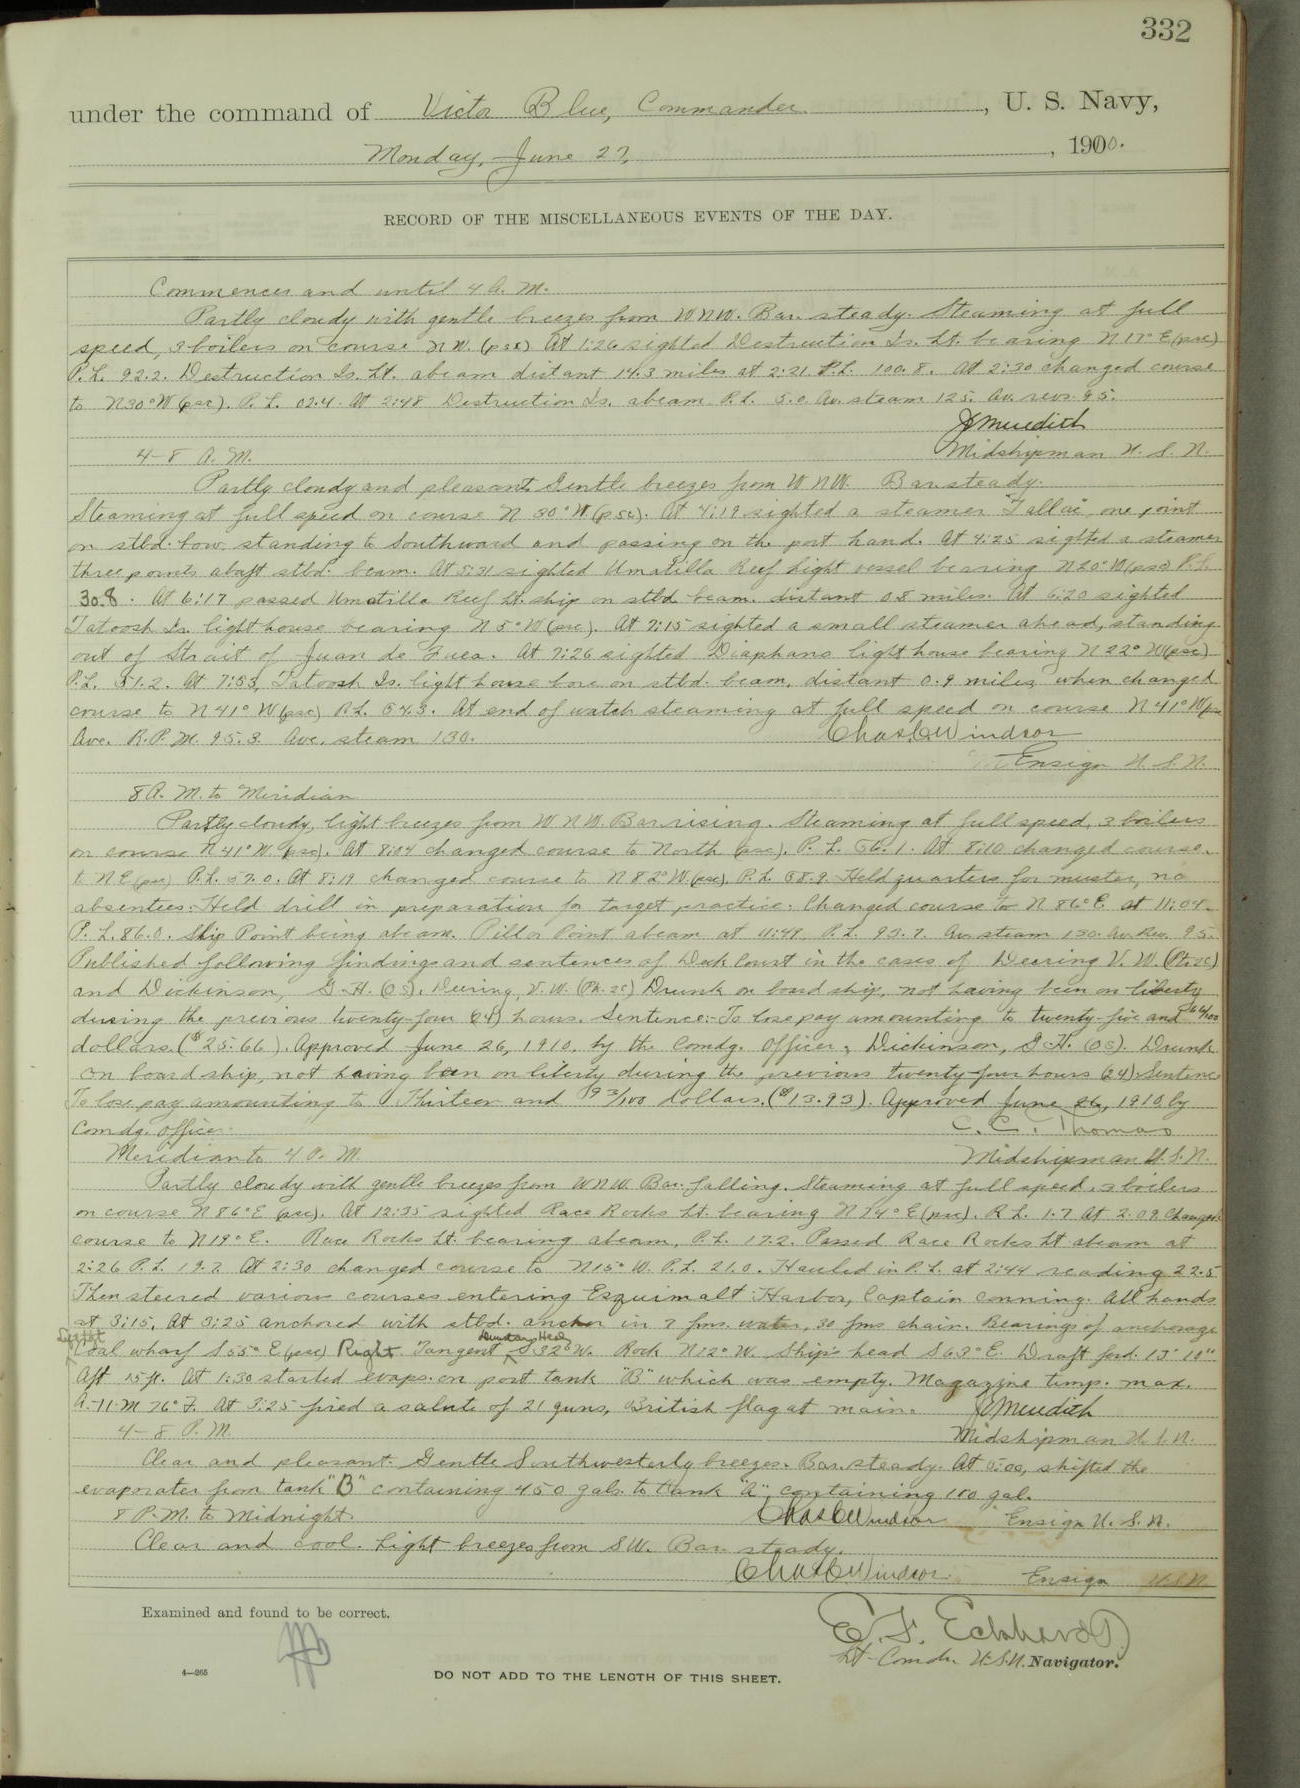 332
under the command of Victor Blue, Commander, U. S. Navy,
Monday, June 27, 1910.
RECORD OF THE MISCELLANEOUS EVENTS OF THE DAY.
Commences and until 4 A. M.
Partly cloudy with gentle breezes from WNW. Bar. steady. Steaming at full
speed, 3 boilers on course NW. (psc) At 1:26 sighted Destruction Is. Lt. bearing N 17° E (psc)
P.L. 92.2. Destruction Is. Lt. abeam distant 14.3 miles at 2:21 P.L. 100.8. At 2:30 changed course
to N30°W (psc). P. L. 02.4. At 2:48 Destruction Is. abeam P.L. 5.0 Av. steam 125. Av. revs. 95.
J Meredith
4-8 A. M.
Midshipman U. S. N.
Partly cloudy and pleasant. Gentle breezes from WNW. Bar steady.
Steaming at full speed on course N 30° W (psc). At 4:19 sighted a steamer one point
on stbd. bow, standing to Southward and passing on the port hand. At 4:25 sighted a steamer
three points abaft stbd. beam. At 5:31 sighted Umatilla Reef Light vessel bearing N20°W (psc) P.L.
30.8. At 6:17 passed Umatilla Reef Lt. ship on stbd. beam. distant 0.8 miles. At 6:20 sighted
Tatoosh Is. lighthouse bearing N 5° W (psc). At 7:15 sighted a small steamer ahead, standing
out of Strait of Juan de Fuca. At 7:26 sighted Diaphano lighthouse bearing N 22° W (psc)
P.L. 51.2. At 7:53, Tatoosh Is. light house bore on stbd. beam, distant 0.9 miles when changed
course to N 41° W (psc) P.L. 54.3. At end of watch steaming at full speed on course N 41° W psc
Ave. R.P.M. 95.3. Ave. steam 130.
Chas C Windsor
Ensign U. S. N.
8 A. M. to Meridian
Partly cloudy, light breezes from WNW. Bar rising. Steaming at full speed, 3 boilers
on course N 41° W (psc). At 8:04 changed course to North (psc). P. L. 56.1. At 8:10 changed course
to NE (psc) P.L. 57.0. At 8:19 changed course to N 82° W (psc) P.L. 58.9. Held quarters for muster, no
absentees. Held drill in preparation for target practice. Changed course to N 86° E. at 11:04.
P. L. 86.0. Slip Point being abeam. Pillar Point abeam at 11:49. P.L. 93.7. Av. steam 130. Av. Rev. 95.
Published following findings and sentences of Deck Court in the cases of Deering V. W. (Ptr. 2c)
and Dickinson, G. H. (OS). Deering, V. W. (Ptr. 2c) Drunk on board ship, not having been on liberty
during the previous twenty-four (24) hours. Sentence:- To lose pay amounting to twenty-five and 66/100
dollars. ($25.66). Approved June 26, 1910, by the Comdg. Officer, Dickinson, G. H. (OS). Drunk
on board ship, not having been on liberty during the previous twenty-four hours (24). Sentence
To lose pay amounting to Thirteen and 93/100 dollars. ($13.93). Approved June 26, 1910, by
Comdg. Officer.
C. C. Thomas
Meridian to 4 P. M.
Midshipman U. S. N.
Partly cloudy with gentle breezes from WNW. Bar. falling. Steaming at full speed, 3 boilers
on course N 86° E (psc). At 12:35 sighted Race Rocks Lt. bearing N 74° E (psc). P. L. 1.7 At 2:09 changed
course to N 19° E. Race Rocks Lt. bearing abeam, P.L. 17.2. Passed Race Rocks Lt abeam at
2:26 P.L. 19.7 At 2:30 changed course to N15° W. P.L. 21.0. Hauled in P. L. at 2:44 reading 22.5
Then steered various courses entering Esquimalt Harbor, Captain conning. All hands
at 3:15. At 3:25 anchored with stbd. anchor in 7 fms. water, 30 fms chain. Bearings of anchorage
Coal wharf S 55° E (psc) Right Tangent S 32° W. Rock N 12° W. Ship's head S 63° E. Draft ford. 13' 10"
Aft 15 ft. At 1:30 started evaps. on port tank "B" which was empty. Magazine temp. max.
A-11-M 76° F. At 3:25 fired a salute of 21 guns, British flag at main.
J Meredith
4-8 P. M.
Midshipman U. S. N.
Clear and pleasant. Gentle Southwesterly breezes. Bar. steady. At 5:00, shifted the
evaporater from tank "B" containing 450 gals. to tank "A", containing 100 gal.
8 P. M. to Midnight.
Chas C Windsor Ensign U. S. N.
Clear and cool. Light breezes from SW. Bar. steady.
Chas C Windsor Ensign U.S.N.
Examined and found to be correct.
E. F. Eckhardt
Lt-Comdr. U.S.N. Navigator.
4—265
DO NOT ADD TO THE LENGTH OF THIS SHEET.